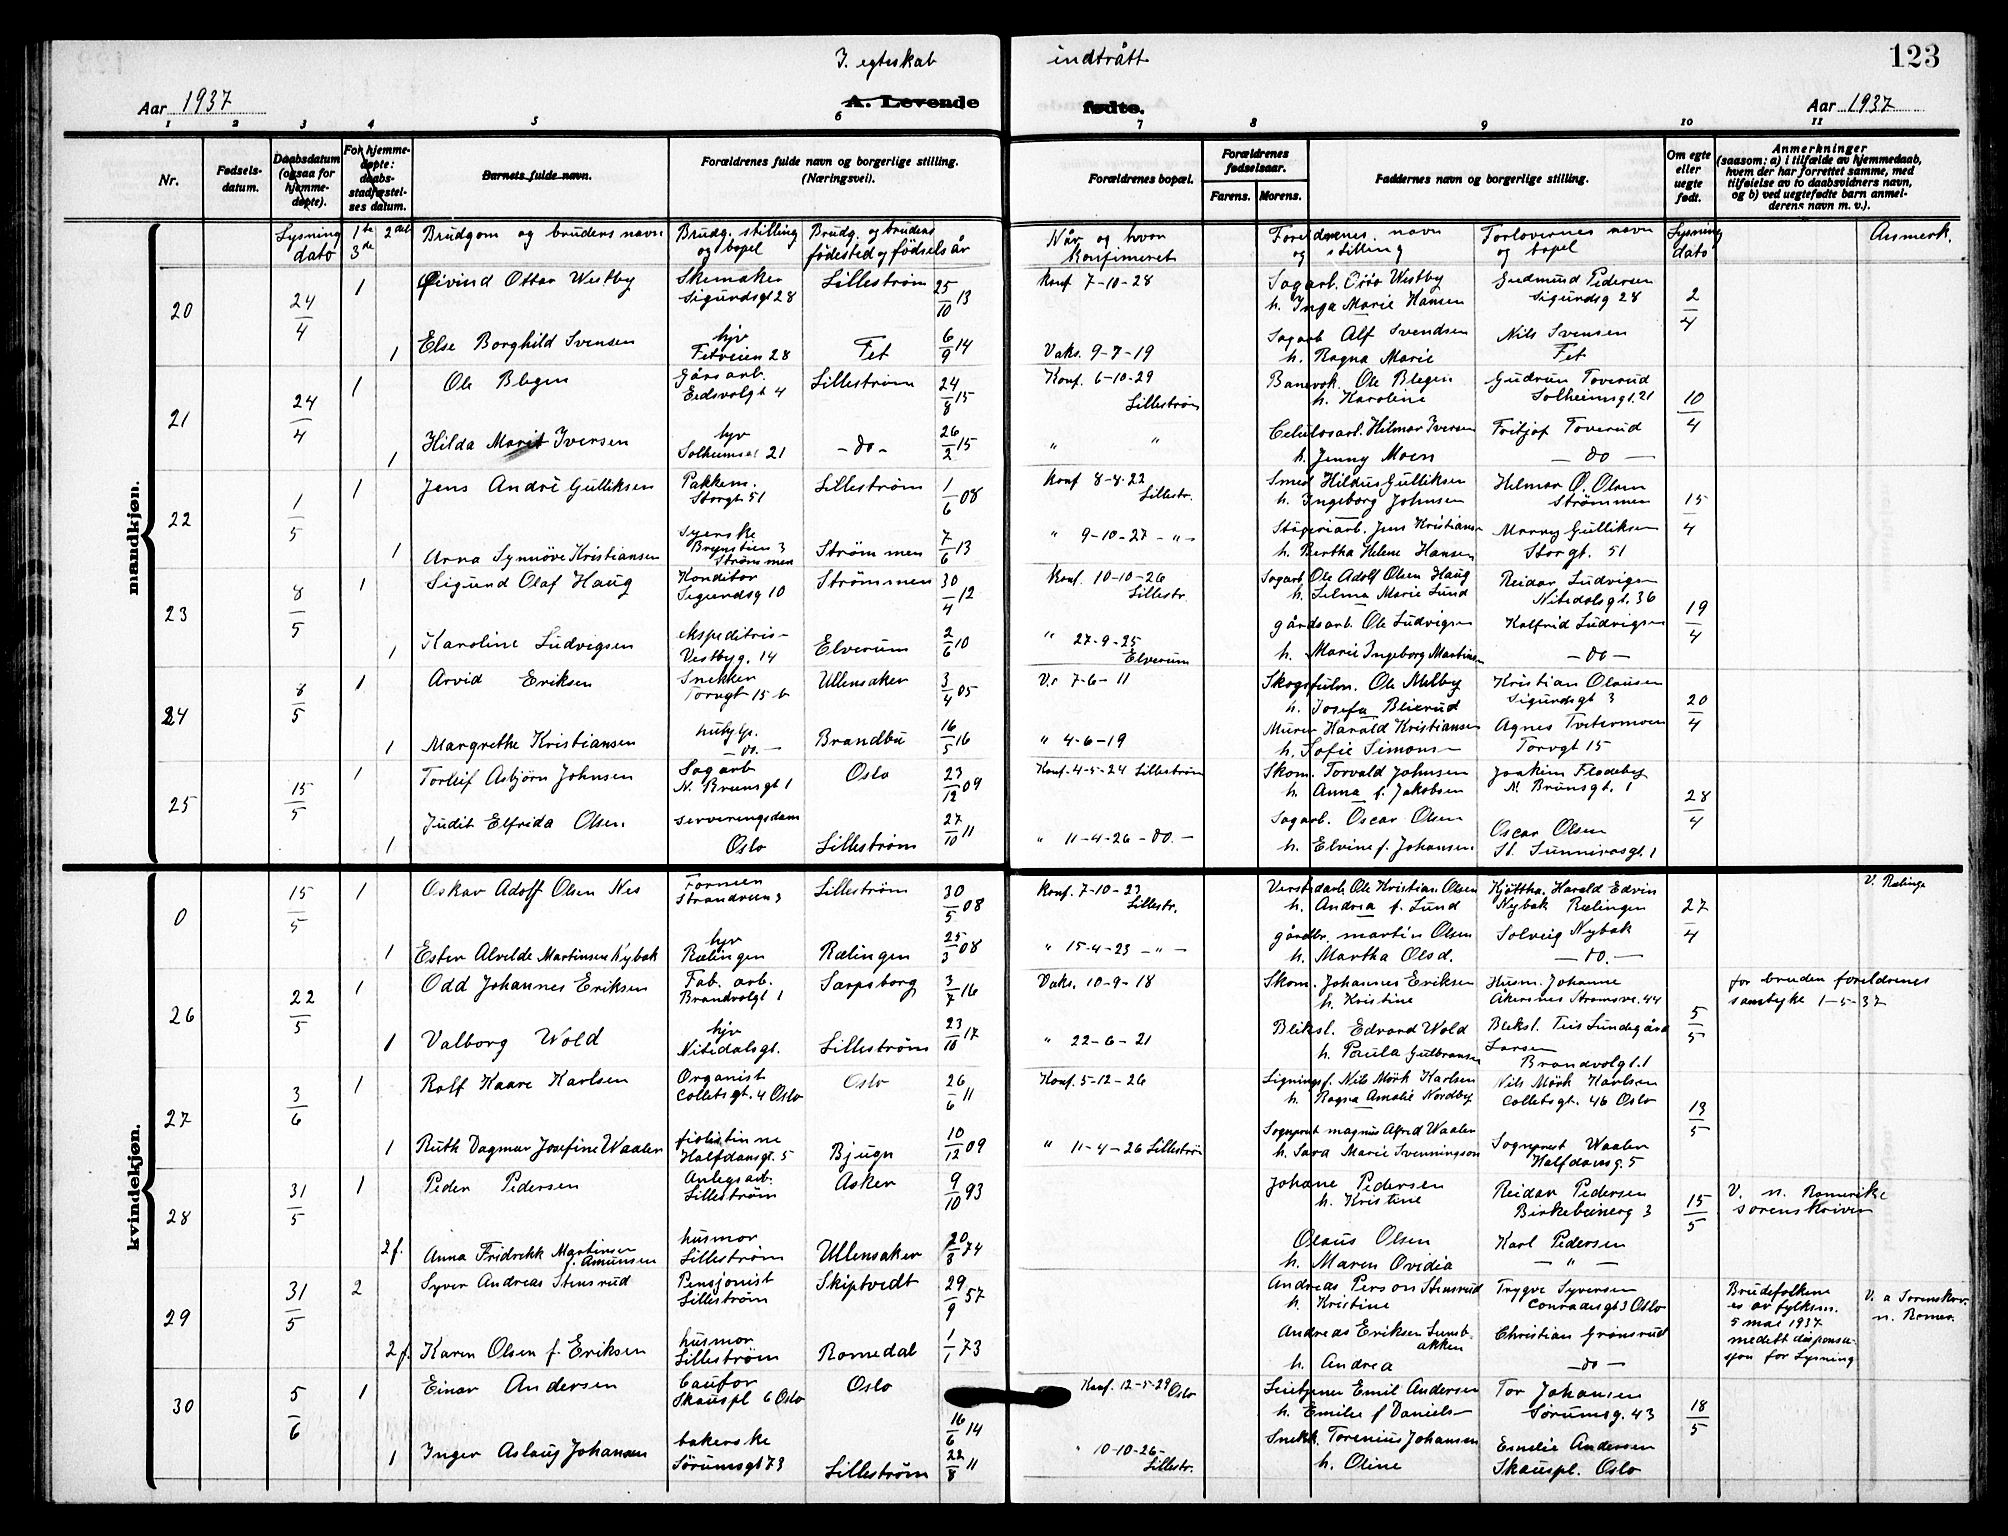 123
I. egteskab indtrått
Aar 1937
A. Levende fødte.
Aar 1937
1 2 3 4 5 6 7 8 9 10 11
Nr.
Fødsels-
datum.
Daabsdatum
(ogsaa for
hjemme-
døpte).
For hjemme-
døpte:
daabs-
stadfæstel-
ses datum.
Barnets fulde navn.
Forældrenes fulde navn og borgerlige stilling.
(Næringsvei).
Forældrenes bopæl.
Forældrenes
fødselsaar.
Farens. Morens.
Faddernes navn og borgerlige stilling.
Om egte
eller
uegte
født.
Anmerkninger
(saasom: a) i tilfælde av hjemmedaab,
hvem der har forrettet samme, med
tilføielse av to daabsvidners navn,
og b) ved uegtefødte barn anmel-
derens navn m. v.).
mandkjøn.
kvindekjøn.
Lysning dato 1ste 2det 3de Brudgom og brudens navn Brudg. stilling og bopel Brudg. og brudens fødested og fødselsår Når og hvor Konfirmeret Foreldrenes navn og stilling Forlovernes navn og bopel Lysning dato Anmerk.
20 24/4 1 Øivind Ottar Westby Skomaker Sigurdsgt 28 Lillestrøm 25/10 13 Konf 7-10-28 Sagarb. Otto Westby h. Inga Marie Hansen Gudmund Pedersen Sigurdsg 28 2/4
1 Else Borghild Svensen hjv Fetveien 28 Fet 6/9 14 Vaks. 9-7-19 Sagarb Alf Svendsen h. Ragna Marie Nils Svensen Fet
21 24/4 1 Ole Blegen Gårsarb. Eidsvolgt 4 Lillestrøm 24/8 15 Konf. 6-10-29 Lillestrøm Banevok. Ole Blegen h. Karoline Gudrun Toverud Solheimsgt. 21 10/4
1 Hilda Marit Iversen hjv 21 -do- 26/2 15 " " Celulosarb. Hilmar Iversen h. Jenny Moen Fritjof Toverud - do -
22 1/5 1 Jens André Gulliksen Pakkem. Storgt 51 Lillestrøm 1/6 08 Konf 8-8-22 Lillestr. Smed Hildus Gulliksen h. Ingeborg Johnsen Helmar O. Olsen Strømmen 15/4
1 Arna Synnöve Kristiansen Syerske Brynstien 3 Strømmen Strømmen 7/6 13 " 9-10-27 - " - Jens Kristiansen h. Bertha Helene Hansen Marry Gulliksen Storgt. 51
23 8/5 1 Sigurd Olaf Haug Konditor Sigurdsg 10 Strømmen 30/4 12 Konf. 10-10-26 Lillestr. Sagarb Ole Adolf Olsen Haug h. Selma Marie Lund Reidar Ludvigsen Nitedalsgt. 36 19/4
1 Karoline Ludvigsen ekspeditris- Vestbyg. 14 Elverum 2/6 10 " 27-9-25 Elverum gårdsarb Ole Ludvigsen h. Marie Ingeborg Martinsen Kolfrid Ludvigsen -do-
24 8/5 1 Arvid Eriksen Snekker Torvgt 15 b Ullensaker 3/4 05 V.r 7-6-11 Skogsfulm. Ole Melby h. Josefa Blierud Kristian Olausen Sigurdsgt 3 20/4
1 Margrethe Kristiansen -do.- Brandbu 16/5 16 " 4-6-19 Murer Harald Kristiansen h. Sofie Simons- Agnes Tvetermoen Torvgt 15
25 15/5 1 Torleif Asbjørn Johnsen Sagarb N. Brunsgt 1 Oslo 23/12 09 Konf. 4-5-24 Lillestrøm Skom. Torvald Johnsen h. Anna f. Jakobsen Joakim Flodeby N. Brunsgt. 1 28/4
1 Judit Elfrida Olsen serveringsdam Oslo Lillestrøm 27/10 11 " 11-4-26 -do.- Sagarb. Oscar Olsen h. Elvine f. Johansen Oscar Olsen St. Sunnivasgt. 1
0 15/5 1 Oskar Adolf Olsen Nes Strandveien 3 Lillestrøm 30/5 08 Konf. 7-10-23 Lillestr. Verstedarb Ole Kristian Olsen h. Andrea f. Lund Kjøttha. Harald Edvin Nybak Rælingen 27/4 V. Rælinge
1 Ester Alvilde Martinsen Nybak hjv Rælingen Rælingen 25/3 08 " 15-4-23 - " - gårdbr. martin Olsen h. Martha Olsd. Solveig Nybak - do. -
26 22/5 1 Odd Johannes Eriksen Fab. arb. Brandvolgt 1 Sarpsborg 3/7 16 Vaks. 10-9-18 Skom. Johannes Eriksen h. Kristine Husm. Johanne Åkersnes Stromsve. 44 5/5 for bruden foreldrenes samtyke 1-5-37
1 Valborg Wold hjv Nitedalsgt. Lillestrøm 23/10 17 " 22-6-21 Bliksl. Edvard Wold h. Paula Gulbransen Bleksl. Teis Lundegård Larsen Brandvolgt. 1
27 3/6 1 Rolf Kaare Karlsen Organist Colletsgt. 4 Oslo Oslo 26/6 11 Konf. 5-12-26 Ligningsf. Nils Mörk Karlsen h. Ragna Amalie Nordby Nils Mörk Karlsen Colletsgt. 46 Oslo 13/5
1 Ruth Dagmar Josefine Waaler fiolistinne Halfdansgt. 5 Bjugn 10/12 09 " 11-4-26 Lillestrøm Sogneprest magnus Alfred Waaler h. Sara Marie Svenningson Sogneprest Waaler Halfdansg. 5
28 31/5 1 Peder Pedersen Anlegsarb. Lillestrøm Asker 9/10 93 Johane Pedersen h. Kristine Reidar Pedersen Birkebeinerg 3 15/5 V. n. Romerike sorenskriver
2 f. Anna Fridrekk Martinsen f. Amunsen husmor Lillestrøm Ullensaker 20/3 74 Olaus Olsen h. Maren Ovidia Karl Pedersen - " -
29 31/5 2 Syver Andreas Stensrud Pensjonist Lillestrøm Skiptvedt 29/9 57 Andreas Person Stensrud h. Kristine Trygve Syversen Conradisgt 3 Oslo Brudefolkene es av fylkesm. 5 mai 1937 medelt dispensasjon for Lysning V. a Sorenskriv. n. Romer.
2 f. Karen Olsen f. Eriksen husmor Lillestrøm Romedal 1/1 73 Andreas Eriksen Lunsbakken h. Andrea Christian Grønsrud -do-
30 5/6 1 Einar Andersen Skauspl 6 Oslo Oslo 16/6 14 Konf. 12-5-29 Oslo Emil Andersen h. Emilie f Daniels- Tor Johansen Sørumsg. 43 18/5
1 Inger Aslaug Johansen bakerske Sørumsgt 73 Lillestrøm 22/8 11 " 10-10-26- Lillestr. Snekk. Torenius Johansen h. Oline Emelie Andersen Skauspl. Oslo